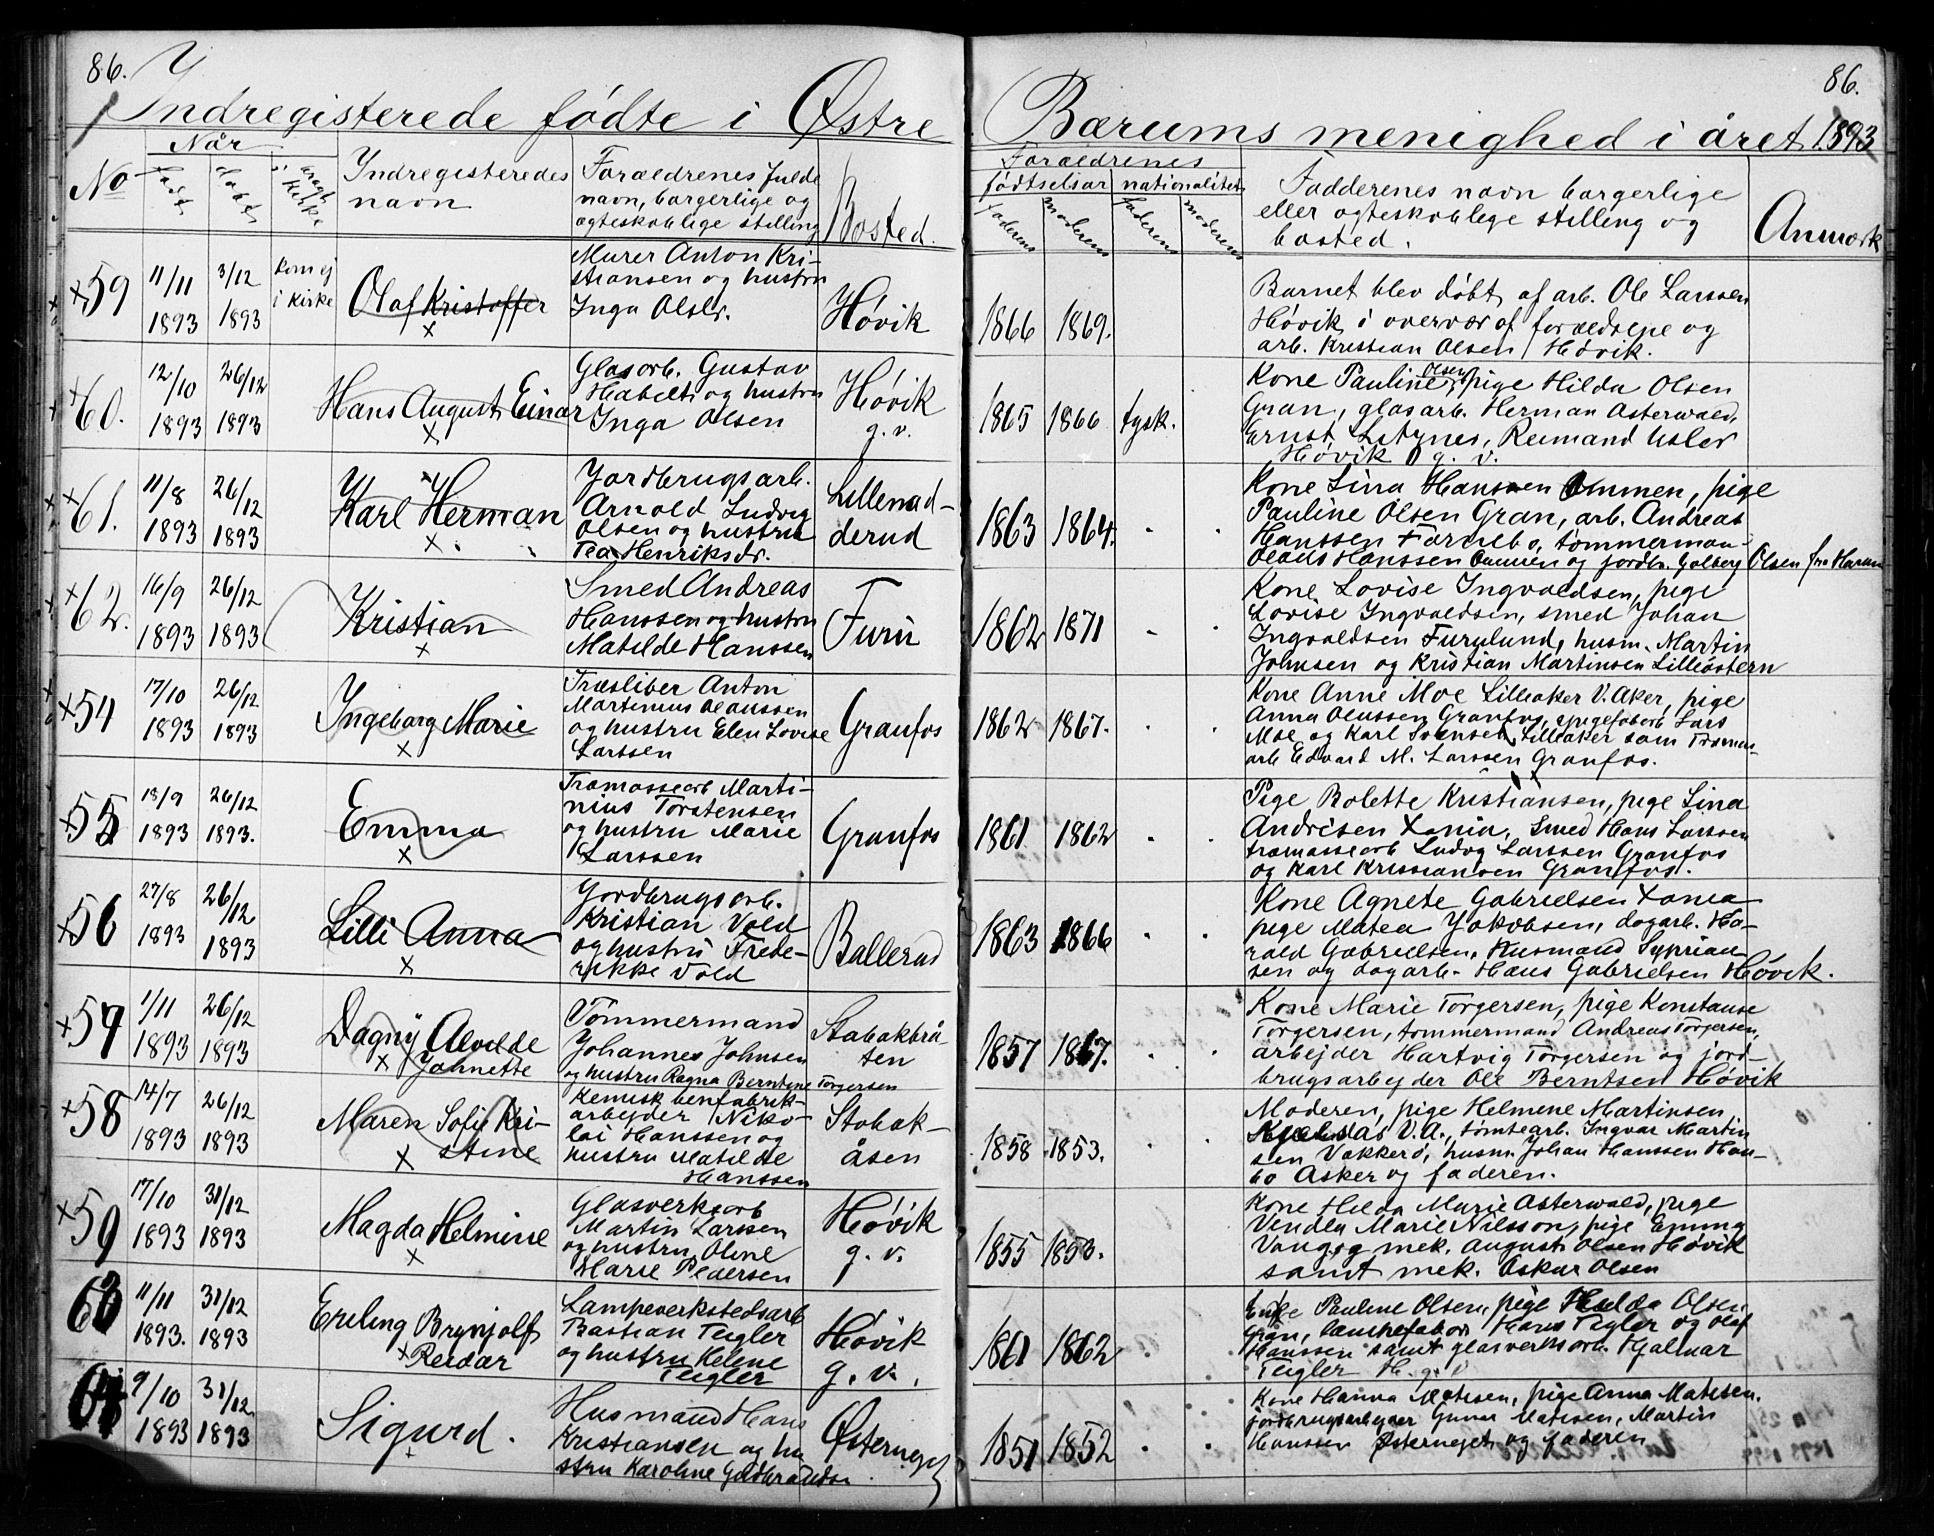 86.
Indregisterede fødte i Østre Bærums menighed i året 1893
86.
No
Når
født
døbt
bragt i kirke
Indregisteredes navn
Forældrenes fulde navn, borgerlige og ægteskablige stilling
Bosted.
Forældrenes
fødtselsår
nationalitet
faderens
moderens
faderens
moderens
Fadderenes navn borgerlige eller ægteskablige stilling og bosted.
Anmærk
59
11/11 1893
3/12 1893
kom ej i kirke
Olaf Kristoffer
Murer Anton Kri-
stiansen og hustru
Inga Olsdr.
Høvik
1866
1869.
Barnet blev døbt af arb. Ole Larssen
Høvik i overvær af forældrene og
arb. Kristian Olsen Høvik.
60.
12/10 1893
26/12 1893
Hans August Einar
Glasarb. Gustav
Habelt og hustru
Inga Olsen
Høvik
g. v.
1865
1866
tysk.
Kone Pauline Olsen, pige Hilda Olsen
Gran, glasarb. Herman Asterwald,
Ernst
Høvik g. v.
61.
11/8 1893
26/12 1893
Karl Herman
Jordbrugsarb.
Arnold Ludvig
Olsen og hustru
Tea Henriksdr.
Lillenad-
derud
1863
1864.
Kone Lina Hanssen Ommen, pige
Pauline Olsen Gran, arb. Andreas
Hanssen Fornebo, tømmerman
Olaus Hanssen Ommen og jordbr. Golberg Olsen fra Haram
62.
16/9 1893
26/12 1893
Kristian
Smed Andreas
Hanssen og hustru
Matilde Hanssen
Furu
1862
1871
Kone Lovise Ingvaldsen, pige
Lovise Ingvaldsen, smed Johan
Ingvaldsen Furulund, husm. Martin
Johnsen og Kristian Martinsen Lilløstern
54
17/10 1893
26/12 1893
Ingeborg Marie
Træsliber Anton
Martinius Olaussen
og hustru Elen Lovise
Larssen
Granfos
1862
1867.
Kone Anne Moe Lilleaker V. Aker, pige
Anna Olaussen Granfos, spigefabarb Lars
Moe og Karl Svensen Lilleaker samt Træmas-
arb Edvard M. Larssen Granfos.
55
18/9 1893
26/12 1893.
Emma
Træmassearb Marti-
nius Torstensen
og hustru Marie
Larssen
Granfos
1861
1862
Pige Bolette Kristiansen, pige Lina
Andrisen Xania, Smed Hans Larssen
træmassearb Ludvg Larssen Granfos
og Karl Kristiansen Granfos.
56
27/8 1893
26/12 1893
Lilli Anna
Jordbrugsarb.
Kristian Vold
og hustru Frede-
rikke Vold
Ballerud
1863
1866
Kone Agnete Gabrielsen Xania
pige Matea Jakobsen, dagarb. Ha-
rald Gabrielsen, Husmand Syprian-
sen og dagarb. Hans Gabrielsen Høvik.
57
1/11 1893
26/12 1893
Dagny Alvilde
Johnette
Tømmermand
Johannes Johnsen
og hustru Ragna Berntine Torgersen
Stabakbrå-
ten
1857
1867.
Kone Marie Torgersen, pige Konstanse
Torgersen, tømmermand Andreas Torgersen,
arbejder Hartvig Torgersen og jord-
brugsarbejder Ole Berntsen Høvik
58
14/7 1893
26/12 1893
Maren Sofie Kri-
stine
Kemisk benfabrik-
arbejder Niko-
lai Hanssen og
hustru Matilde
Hanssen
Stabak-
åsen
1858
1853.
Moderen, pige Helmene Martinsen
V. A., tømtearb. Ingvar Martin
sen Vækkerø, husm. Johan Hanssen Han-
bo Asker og faderen.
59
17/10 1893
31/12 1893
Magda Helmine
Glasverksarb
Martin Larssen
og hustru Oline
Marie Pedersen
Høvik
g. v.
1855
1853.
Kone Hilda Marie Asterwald, pige
Vendla Marie Nilsson, pige Emma
Vang og mek. August Olsen Høvik
samt mek. Oskar Olsen
63
11/11 1893.
31/12 1893
Erling Brynjolf
Reidar
Lampeverkstedsarb
Bastian Teigler
og hustru Helene
Teigler
Høvik
g. v.
1861
1862
Enke Pauline Olsen, pige Hilda Olsen
Gran, Hans Teigler og Olaf
Hanssen samt glasverksarb. Hjalmar
Teigler H. g. v
64
9/10 1893
31/12 1893
Sigurd.
Husmand Hans
Kristiansen og hu
stru Karoline Guldbrandsn
Østerneget
1851
1852
Kone Hanna Matisen, pige Anna Matisen,
jordbrugsarbejder Gunar Matisen, Martin
Hanssen Østerneget og faderen